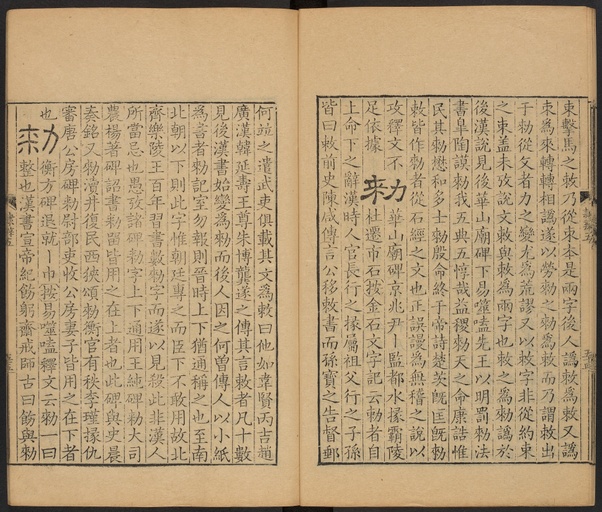 束擊馬之敇乃從朿本是兩字後人譌敕爲敇又譌
束爲來轉轉相譌遂以勞勑之勑爲敕而乃謂敕出
于勑從攵者力之變尤爲荒謬又以敕字非從約束
之束蓋未攷說文敕與敇爲兩字也敕之爲勑譌於
後漢說見後華山廟碑下易噬嗑先王以明罰勑法
書臯陶謨勑我五典五惇哉益稷勑天之命康誥惟
民其勑懋和多士勑殷命終于帝詩楚茨旣匡旣勑
敕皆作勑者從石經之文也正誤謾爲無稽之說以
攻釋文不
足依據
勑
華山廟碑京兆尹丨監都水掾霸陵
杜遷市石按金石文字記云勑者自
上命下之辭漢時人官長行之掾屬祖父行之子孫
皆曰敕前史陳咸傳言公移敕書而孫寶之告督郵
何竝之遣武吏俱載其文爲敕曰他如韋賢丙吉趙
廣漢韓延壽王尊朱博龔遂之傳其言敕者凡十數
見後漢書始變爲勑而後人因之何曾傳人以小紙
爲書者勑記室勿報則晉時上下猶通稱之也至南
北朝以下則此字惟朝廷專之而臣下不敢用故北
齊樂陵王百年習書數勑字而遂以見殺此非漢人
所當忌也愚攷諸碑勑字上下通用王純碑勑大司
農楊著碑詔書勑留皆用之在上者也此碑與史晨
奏銘又勑瀆井復民西狹頌勑衡官有秩李瑾掾仇
審唐公房碑勑尉部吏收公房妻子皆用之在下者
也
勑
衡方碑退就丨巾按易噬嗑釋文云勑一曰
整也漢書宣帝紀飭躬齋戒師古曰飭與勑